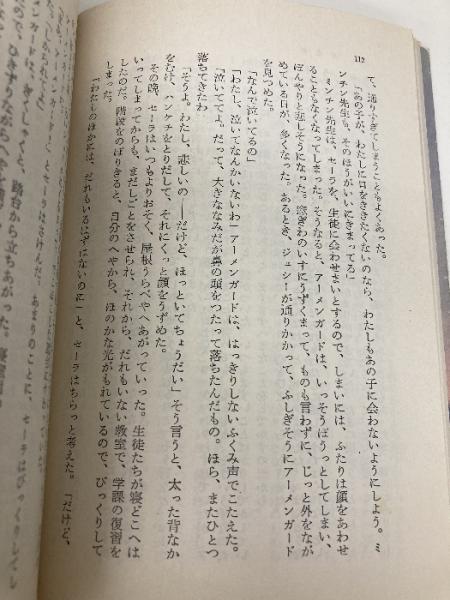 112
て、通りすぎてしまうこともよくあった。
「あの子が、わたしに口をききたくないのなら、わたしもあの子に会わないようにしよう。ミ
ンチン先生も、そのほうがいいにきまってる」
ミンチン先生は、セーラを、生徒に会わせまいとするので、しまいには、ふたりは顔をあわせ
ることもなくなってしまった。そうなると、アーメンガードは、いっそうぼうっとしてしまい、
ぼんやりと悲しそうになった。窓ぎわのいすにうずくまって、ものも言わずに、じっと外をなが
めている日が、多くなった。あるとき、ジェシーが通りかかって、ふしぎそうにアーメンガード
を見つめた。
「なんで泣いてるの」
「わたし、泣いてなんかいないわ」アーメンガードは、はっきりしないふくみ声でこたえた。
「泣いててよ。だって、大きななみだが鼻の頭をつたって落ちたんだもの。ほら、またひとつ
落ちてきたわ」
「そうよ。わたし、悲しいの——だけど、ほっといてちょうだい」そう言うと、太った背なか
をむけ、ハンケチをとりだして、それにくっと顔をうずめた。
その晩、セーラはいつもよりおそく、屋根うらべやへあがっていった。生徒たちが寝どこへは
いってしまってからも、まだしごとをさせられ、それから、だれもいない教室で、学課の復習を
したのだ。階段をのぼりきると、自分のへやから、ほのかな光がもれているので、びっくりして
しまった。
「わたしのほかには、だれもいるはずにないのに」と、セーラはちらっと考えた。「だけど、